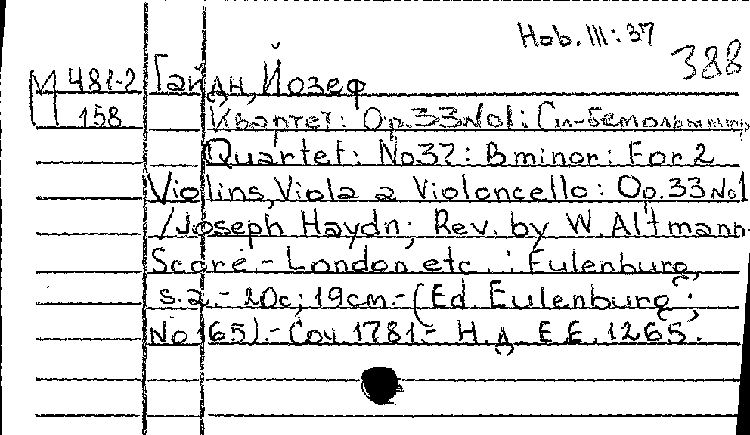 Hob. III: 37
388
М 481-2 Гайдн, Йозеф
158 Квартет: Op.33 No1: Си-бемоль минор
Quartet: No37: B minor: For 2
Violins, Viola a Violoncello: Op.33 No1
/Joseph Haydn; Rev. by W. Altmann.-
Score.- London etc.: Eulenburg,
s.a.- 20c; 19cm.- (Ed. Eulenburg;
No 165).- Соч. 1781.- Н.д. E.E. 1265.